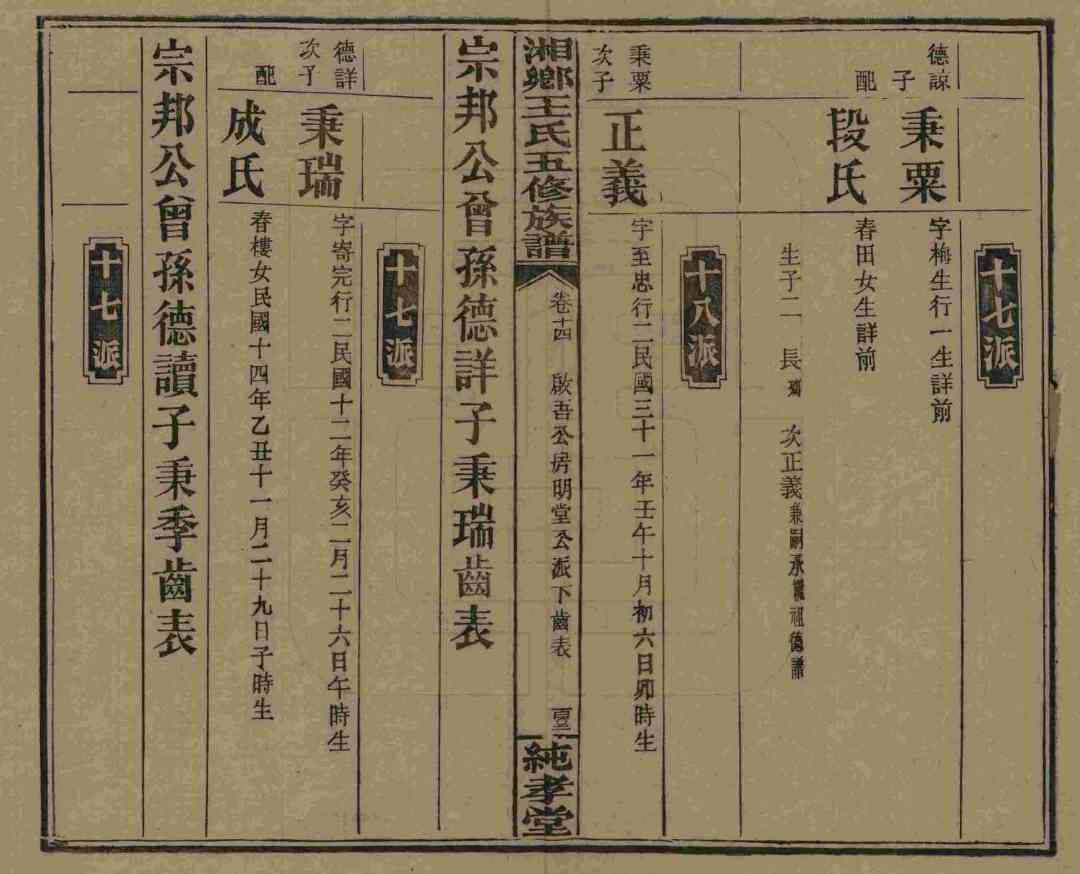 十七派
德諒子
秉粟
字梅生行一生詳前
配
段氏
春田女生詳前
生子二 長殤 次正義兼嗣承祧祖德謙
十八派
秉粟次子
正義
字至忠行二民國三十一年壬午十月初六日卯時生
湘鄉王氏五修族譜
卷十四 啟吾公房明堂公派下齒表
純孝堂
宗邦公曾孫德詳子秉瑞齒表
十七派
德詳次子
秉瑞
字寄完行二民國十二年癸亥二月二十六日午時生
配
成氏
春樓女民國十四年乙丑十一月二十九日子時生
宗邦公曾孫德讀子秉季齒表
十七派